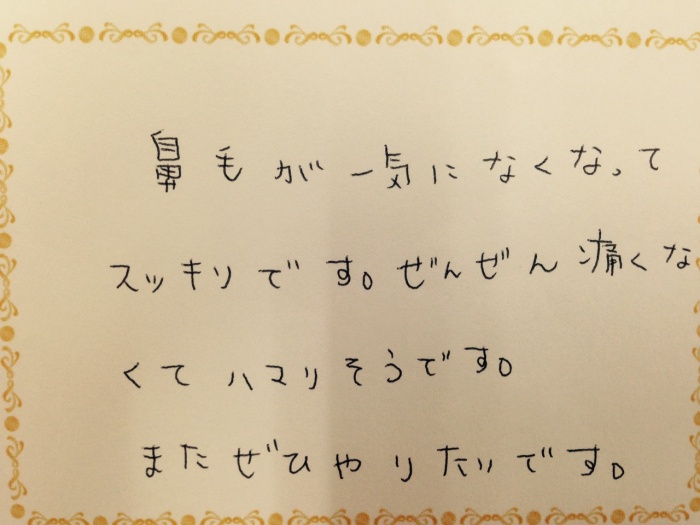 鼻毛が一気になくなって
スッキリです。ぜんぜん痛くな
くてハマリそうです。
またぜひやりたいです。